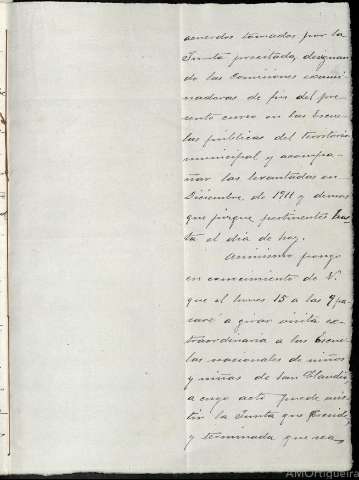 acuerdos tomados por la
Junta precitada, designan
do las Comisiones exami
nadoras de fin del pre
sente curso en las Escue
las públicas del territorio
municipal y acompa
ñar las levantadas en
Diciembre de 1911 y demas
que juzgue pertinentes has
ta el dia de hoy.
Asimismo pongo
en conocimiento de V.
que el lunes 15 a las 9 pa
saré a girar visita ex
traordinaria a las Escue
las nacionales de niños
y niñas de San Claudio
a cuyo acto puede asis
tir la Junta que Preside,
y terminada que sea,
AMOrtigueira